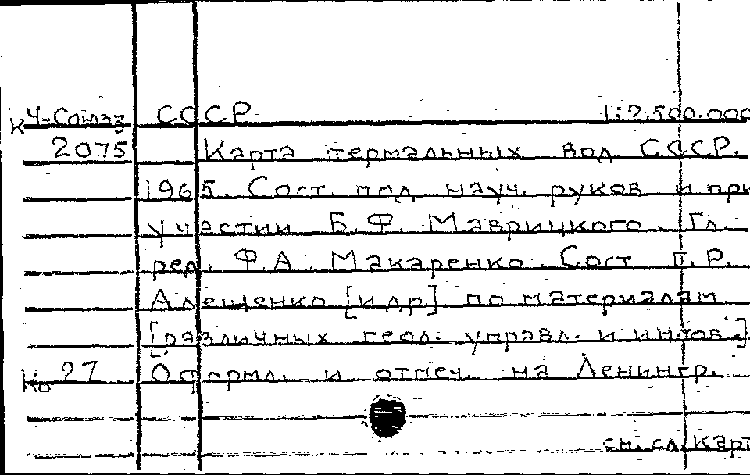 К Ч-Союз СССР 1:2.500.000
2075 Карта термальных вод СССР.
1965. Сост. под науч. руков. и при
участии Б.Ф. Маврицкого. Гл.
ред. Ф.А. Макаренко. Сост. П.Р.
Алещенко [и др.] по материалам
[различных геол. управл. и ин-тов.]
No 27 Оформл. и отпеч. на Ленингр.
см. сл. карт